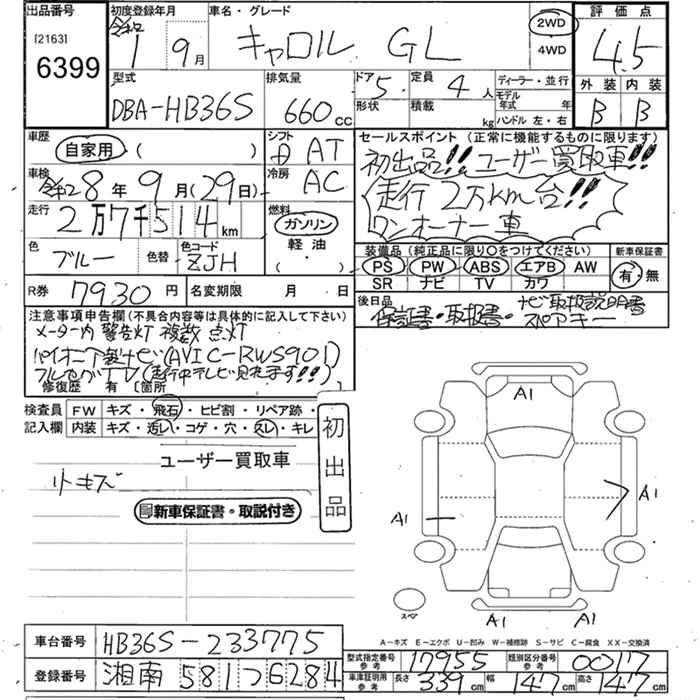 出品番号
[2163]
6399
初度登録年月
令和
1 9月
車名・グレード
キャロル GL
2WD
4WD
評価点
4.5
型式
DBA-HB36S
排気量
660 CC
ドア
5
形状
定員
4人
積載
kg
ディーラー・並行
モデル
年式 年
ハンドル 左・右
外装 内装
B B
車歴
自家用 ( )
シフト
AT
セールスポイント (正常に機能するものに限ります)
初出品!! ユーザー買取車!!
走行 2万km台!!
ワンオーナー車
車検
令和 8年 9月(29日)
冷房
AC
走行
2万7千514 km
燃料
ガソリン
軽油
( )
色
ブルー
色替
色コード
ZJH
装備品 (純正品に限り○をつけてください)
PS PW ABS エアB AW
SR ナビ TV カワ
新車保証書
有・無
R券 7930円
名変期限 月 日
後日品
保証書・取扱書・ナビ取扱説明書
スペアキー
注意事項申告欄(不具合内容等は具体的に記入して下さい)
メーター内 警告灯 複数 点灯
パイオニア製ナビ(AVIC-RWS901)
フルセグTV(走行中テレビ見れます!!)
修復歴 有 [箇所
検査員
記入欄
FW キズ・飛石・ヒビ割・リペア跡・
内装 キズ・汚れ・コゲ・穴・スレ・キレ
初出品
ユーザー買取車
小キズ
新車保証書・取説付き
A1
A1
A1
A1
A1
スペア
A-キズ E-エクボ U-凹み W-補修跡 S-サビ C-腐食 XX-交換済
車台番号 HB36S-233775
登録番号 湘南 581つ6284
型式指定番号
参考
17955
類別区分番号
参考
0017
車庫証明用
参考
長さ 339cm 幅 147cm 高さ 147cm